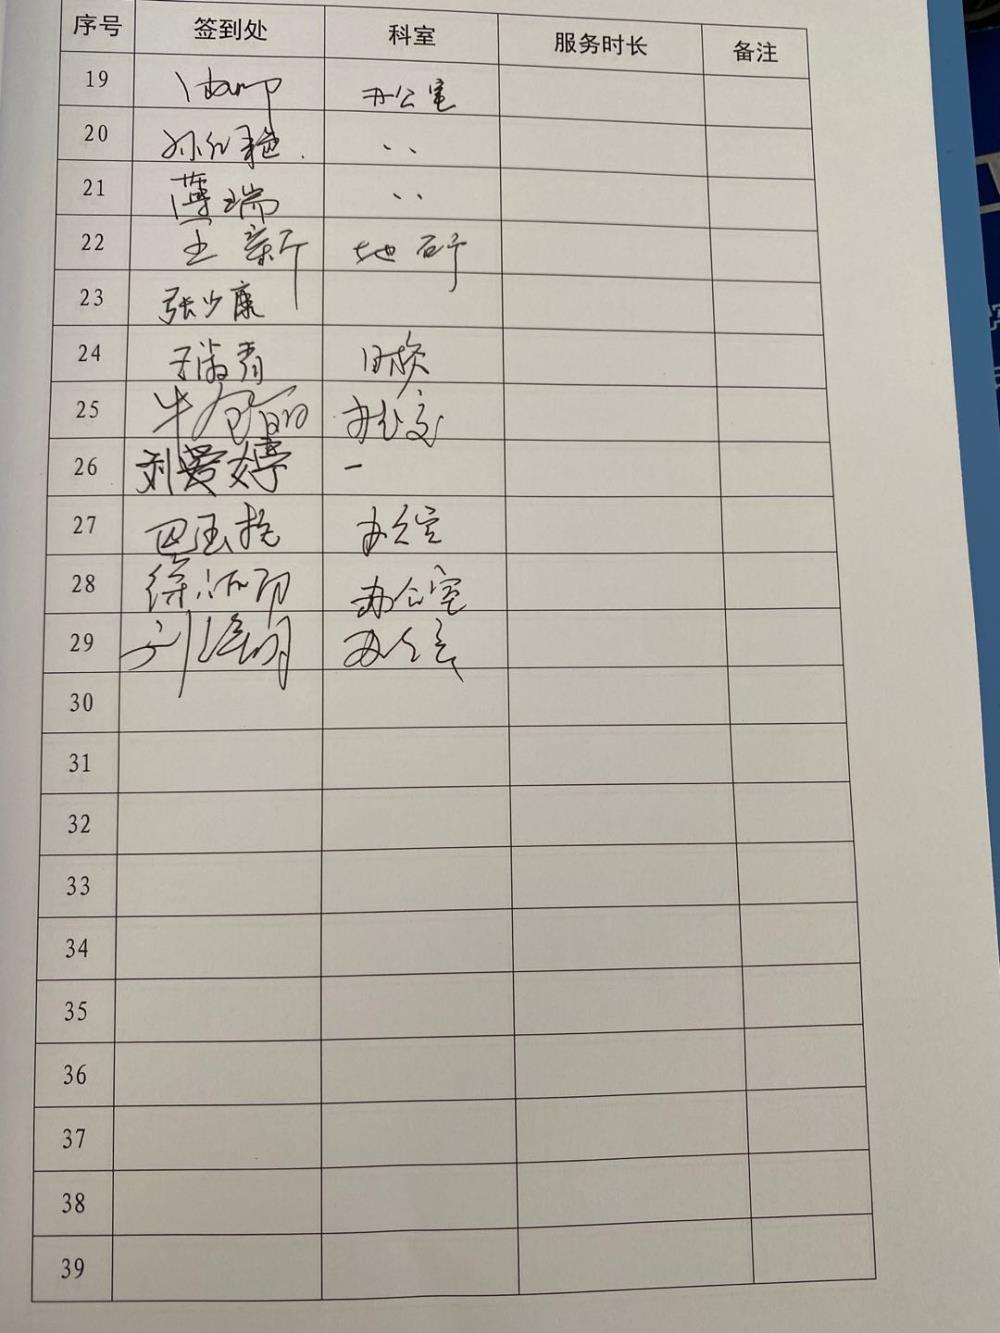 序号 签到处 科室 服务时长 备注
19 办公室
20 孙红艳 、、
21 薄瑞 、、
22 王新 地矿
23 张少康
24 于淑青
25 牛 办公室
26 刘爱婷 一
27 巴玉 办公室
28 徐 办公室
29 刘 办公室
30
31
32
33
34
35
36
37
38
39